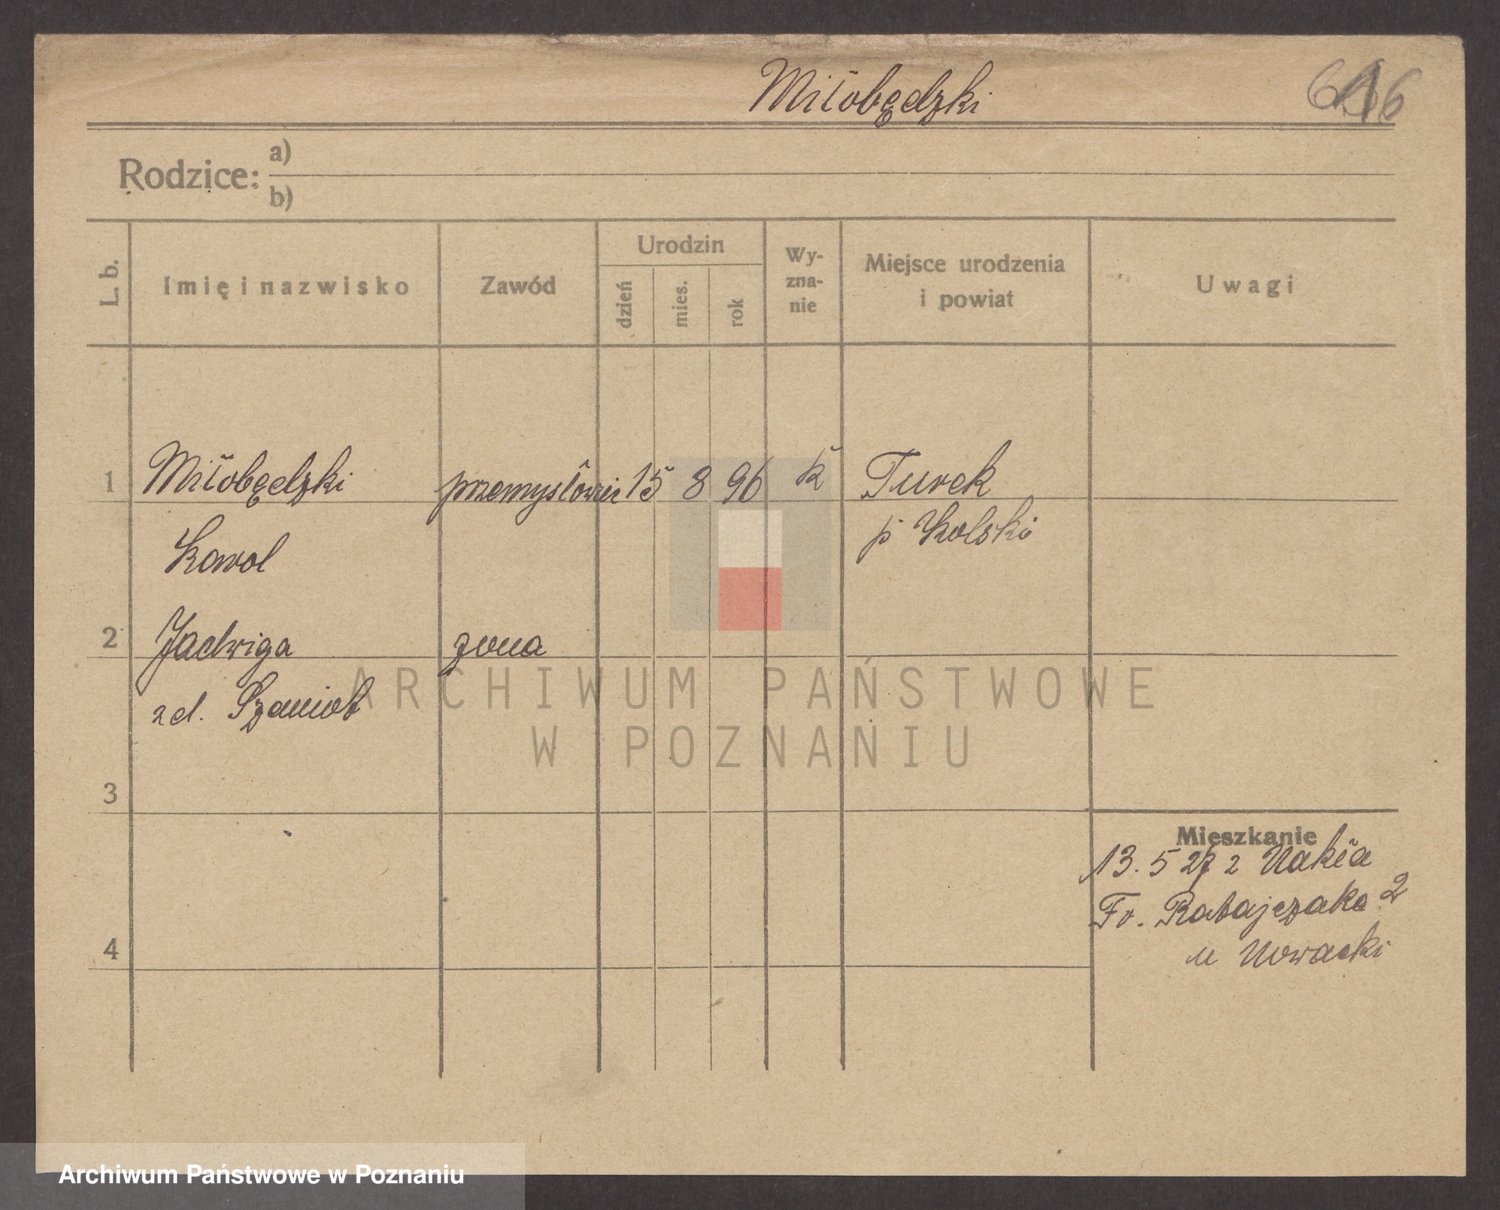 Miłobędzki
Rodzice: a)
b)
L. b.
Imię i nazwisko
Zawód
Urodzin
dzień
mies.
rok
Wy-
zna-
nie
Miejsce urodzenia
i powiat
Uwagi
1 Miłobędzki przemysłowiec 15 8 96 k Turek
Karol p Kolski
2 Jadwiga żona
zd. Szaniob
ARCHIWUM PAŃSTWOWE
W POZNANIU
3
Mieszkanie
13. 5 27 z Nakła
Fr. Ratajczaka 2
4 u Nowacki
Archiwum Państwowe w Poznaniu